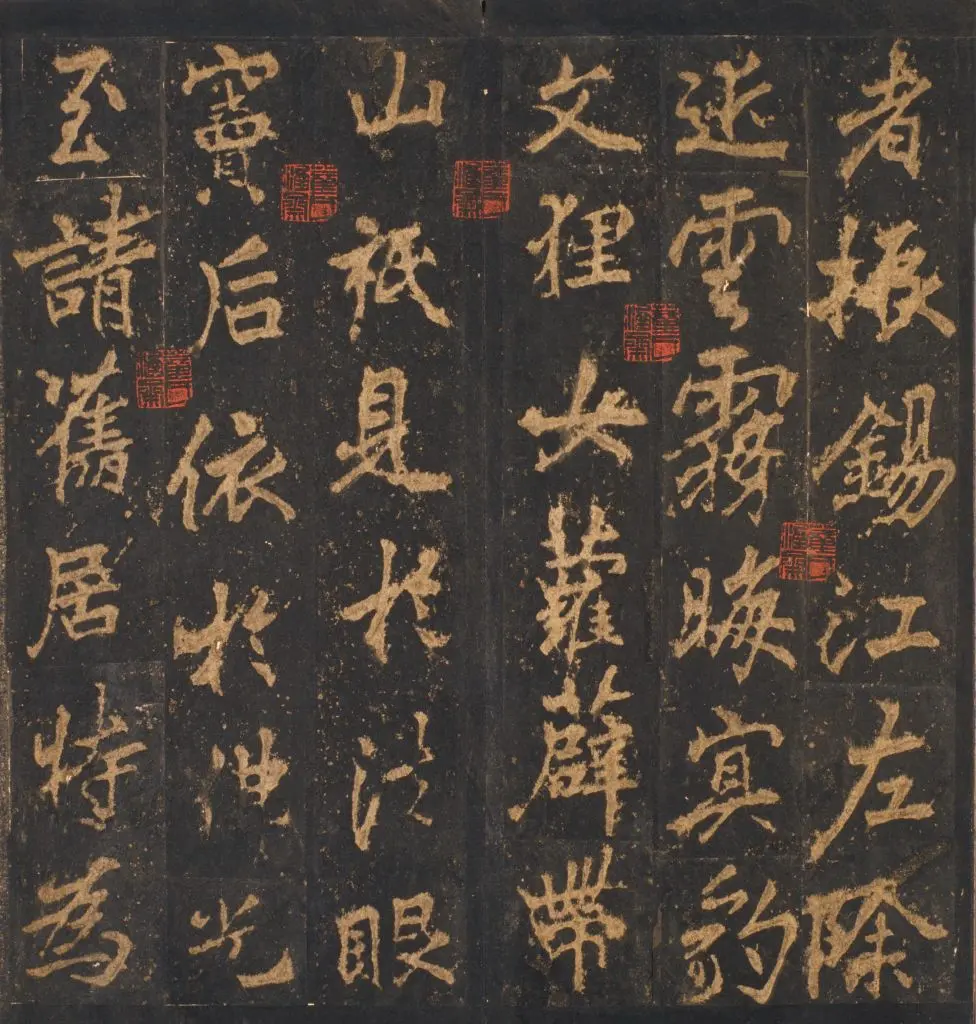 者振錫江左除
雲霧晦冥豹
文狸女蘿薜帶
山祇見於法眼
竇后依於佛光
至請舊居特為